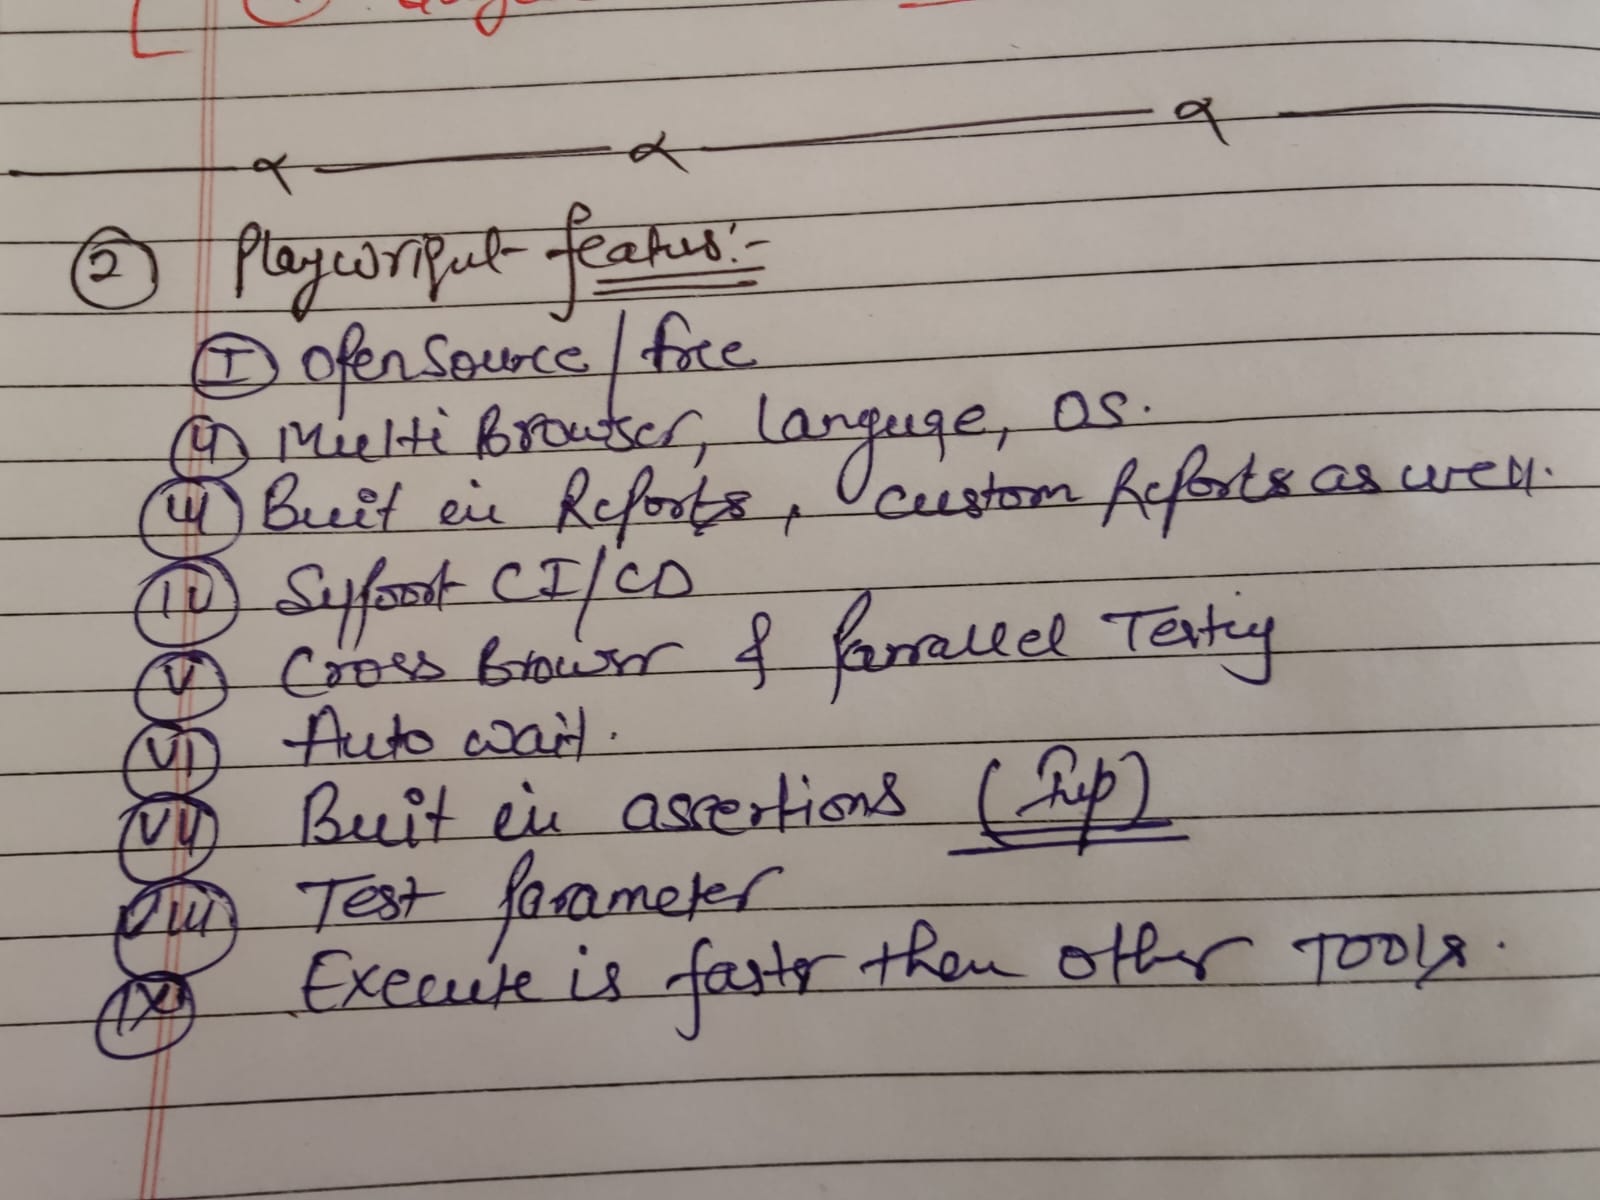 ② Playwright features:-
Ⓘ Open Source / free
ⓘⓘ Multi Browser, Languge, OS.
ⓘⓘⓘ Built in Reports, custom Reports as well.
ⓘⓥ Support CI/CD
ⓥ Cross Browser & Parrallel Testing
ⓥⓘ Auto wait.
ⓥⓘⓘ Built in assertions (Imp)
ⓥⓘⓘⓘ Test Parameter
ⓘⓧ Execute is faster then other Tools.